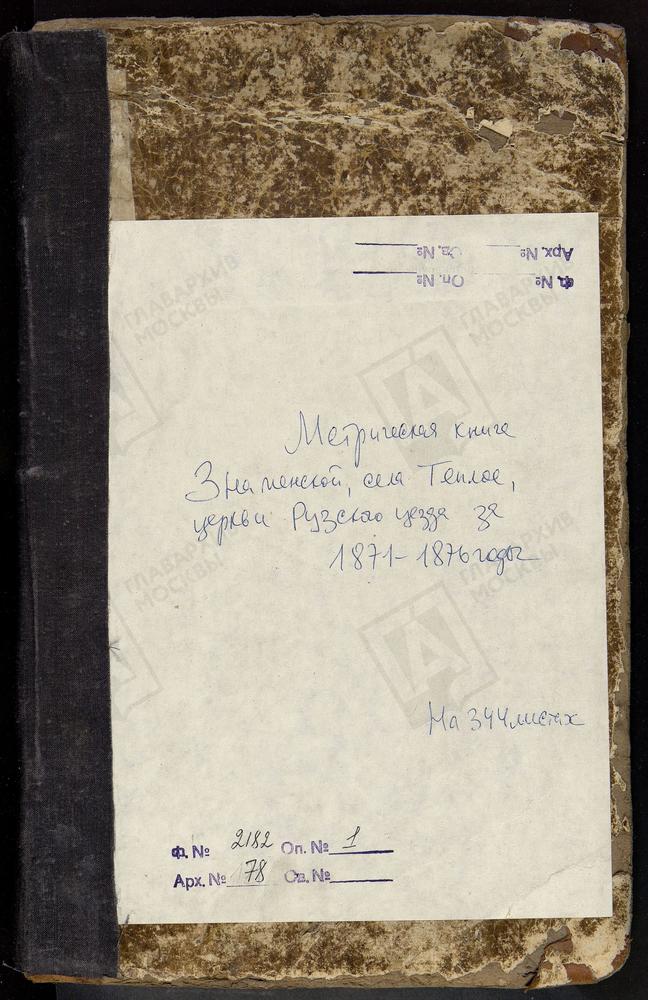 Арх. № Св. №
Ф. № Оп. №
ГЛАВАРХИВ
МОСКВЫ
ГЛАВАРХИВ
МОСКВЫ
Метрическая книга
Знаменской, села Теплое,
церкви Рузского уезда за
1871-1876 годы
ГЛАВАРХИВ
МОСКВЫ
ГЛАВАРХИВ
МОСКВЫ
На 344 листах
Ф. № 2182 Оп. № 1
Арх. № 78 Св. №